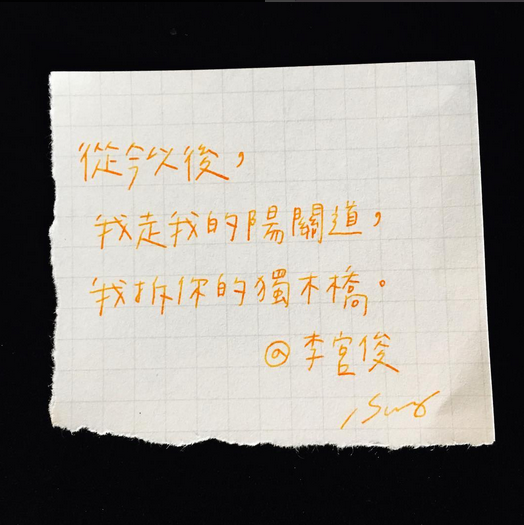 從今以後，
我走我的陽關道，
我拆你的獨木橋。
@李宮俊